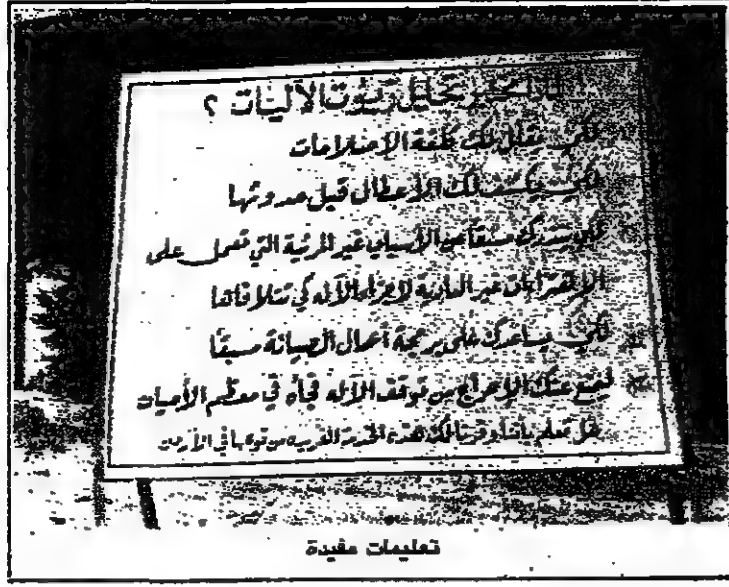 لماذا مختبر تحليل زيوت الآليات ؟
لكي يقلل لك كلفة الإصلاحات
لكي يكشف لك الأعطال قبل حدوثها
لكي ينذرك مسبقاً عن الأسباب غير المرئية التي تعمل على
الإهتراءات غير العادية لاجزاء الآله كي تتلافاها
لكي يساعدك على برمجة أعمال الصيانة مسبقاً
ليمنع عنك الإحراج من توقف الآله فجأه في معظم الأحيان
هل تعلم بأننا وفرنا لك هذه الخدمة الفريده من نوعها في الأردن
تعليمات مفيدة